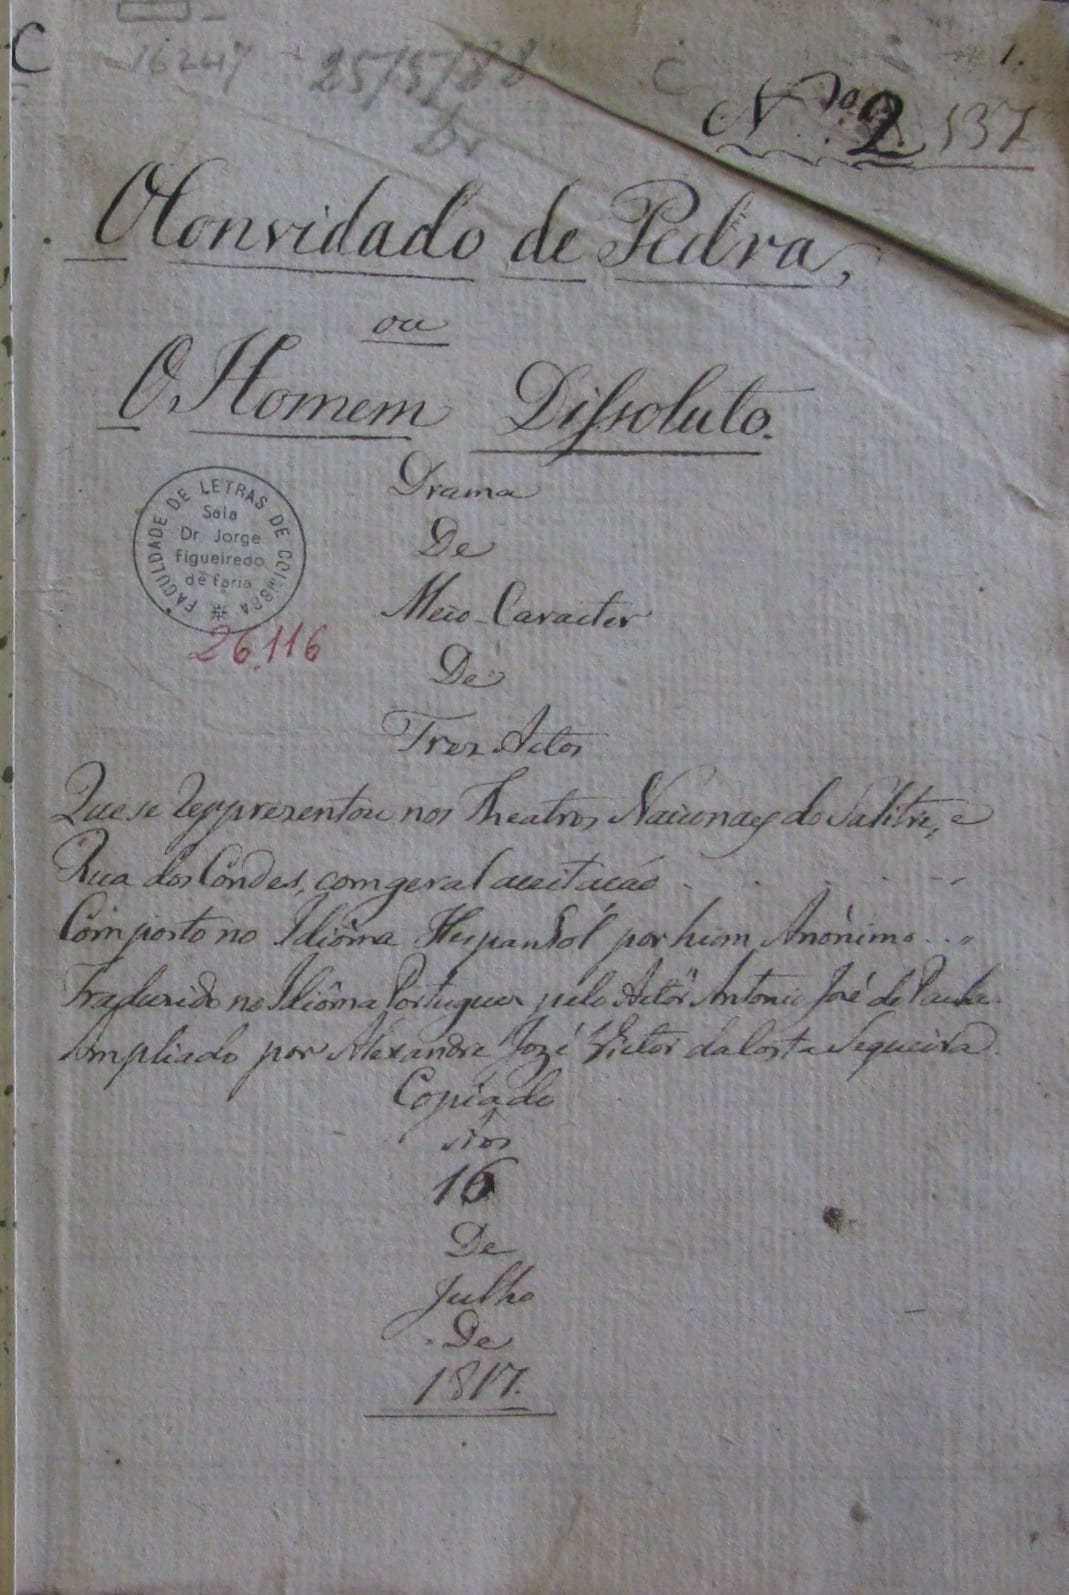 C
16247
25/5/88
C
1.
N.ro 2.
137
O Convidado de Pedra,
ou
O Homem Dissoluto.
FACULDADE DE LETRAS DE COIMBRA
Sala
Dr. Jorge
Figueiredo
de Faria
26.116
Drama
De
Meio-Caracter
De
Tres Actos
Que se reprezentou nos Theatros Nacionaes do Salitre, e
Rua dos Condes, com geral aceitacáo
Composto no Idiôma Hespanhol por hum Anónimo...
Traduzido no Idiôma Portuguez pelo Actôr Antonio José de Paula.
Ampliado por Alexandre Jozé Victor da Costa Sequeira.
Copiado
Aos
16
De
Julho
De
1817.